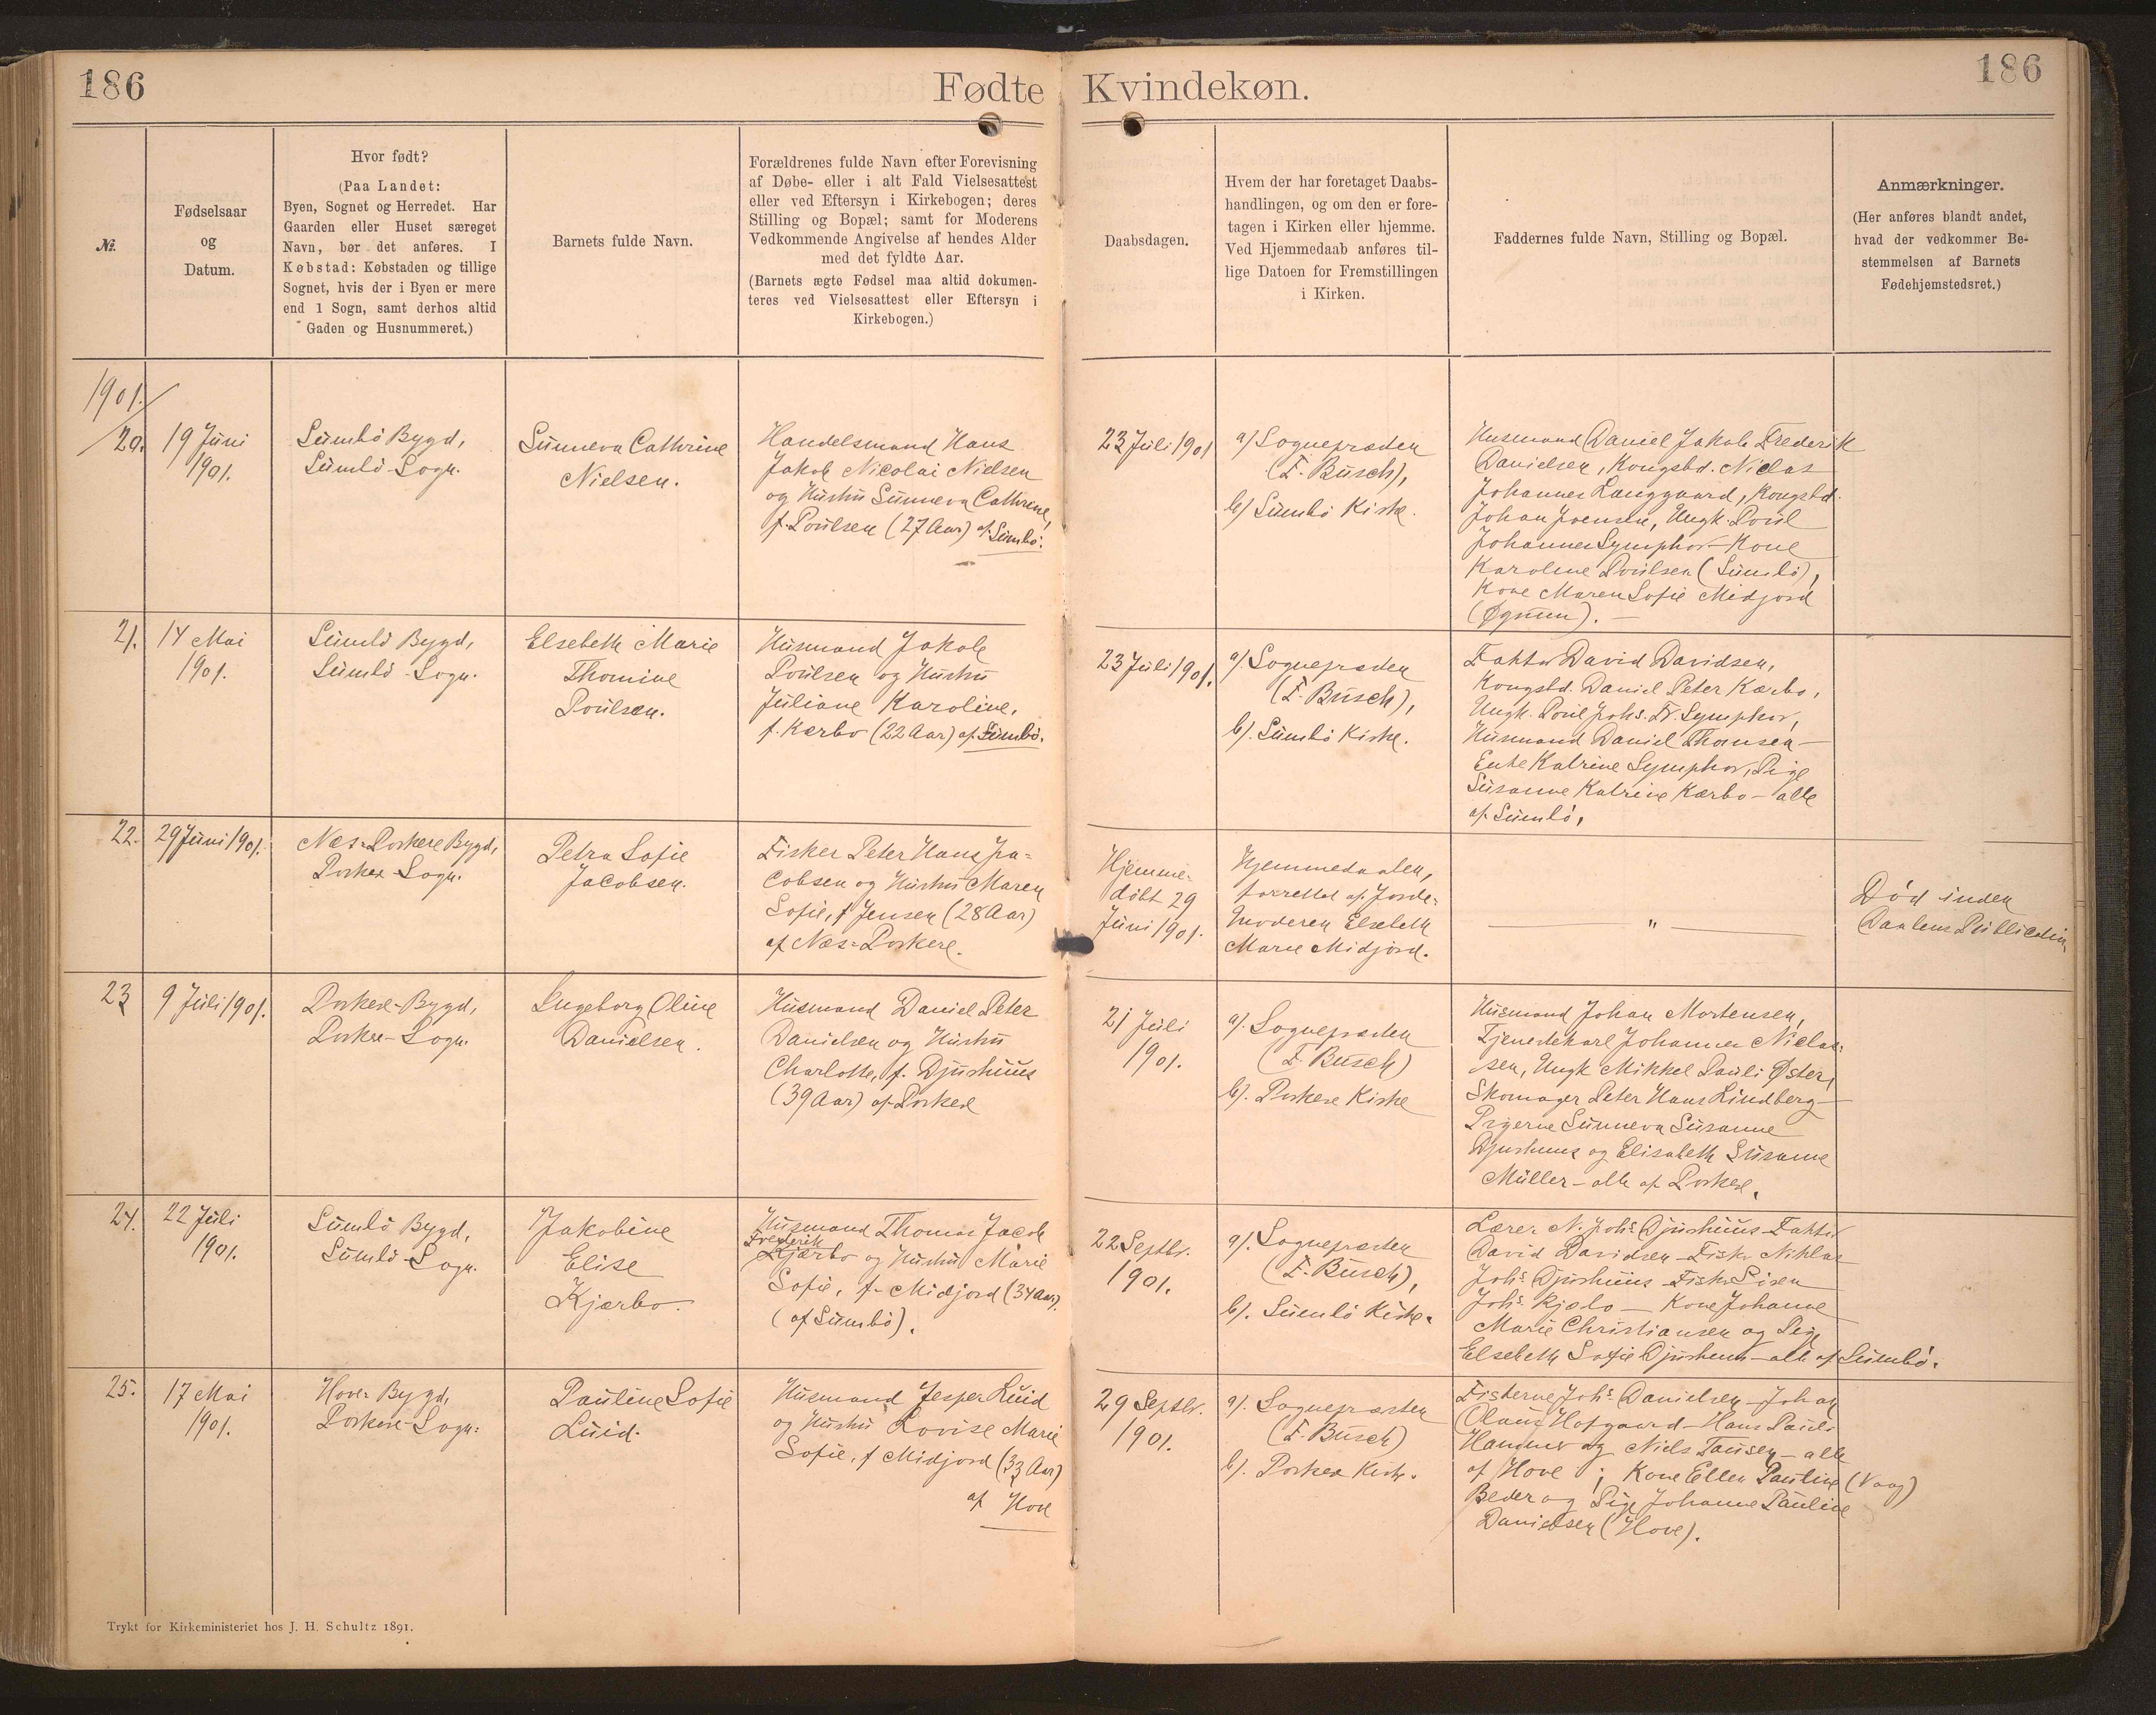 186
Fødte
Kvindekøn.
186
№.
Fødselsaar
og
Datum.
Hvor født?
(Paa Landet:
Byen, Sognet og Herredet. Har
Gaarden eller Huset særeget
Navn, bør det anføres. I
Købstad: Købstaden og tillige
Sognet, hvis der i Byen er mere
end 1 Sogn, samt derhos altid
Gaden og Husnummeret.)
Barnets fulde Navn.
Forældrenes fulde Navn efter Forevisning
af Døbe- eller i alt Fald Vielsesattest
eller ved Eftersyn i Kirkebogen; deres
Stilling og Bopæl; samt for Moderens
Vedkommende Angivelse af hendes Alder
med det fyldte Aar.
(Barnets ægte Fødsel maa altid dokumen-
teres ved Vielsesattest eller Eftersyn i
Kirkebogen.)
Daabsdagen.
Hvem der har foretaget Daabs-
handlingen, og om den er fore-
tagen i Kirken eller hjemme.
Ved Hjemmedaab anføres til-
lige Datoen for Fremstillingen
i Kirken.
Faddernes fulde Navn, Stilling og Bopæl.
Anmærkninger.
(Her anføres blandt andet,
hvad der vedkommer Be-
stemmelsen af Barnets
Fødehjemstedsret.)
1901.
20.
19 Juni
1901.
Sumbö Bygd,
Sumbö-Sogn.
Sunneva Cathrine
Nielsen.
Handelsmand Hans
Jakob Nicolai Nielsen
og Hustru Sunneva Cathrine,
f. Poulsen (27 Aar) af Sumbö.
23 Juli 1901
a) Sognepræsten
(F. Busch),
b) Sumbö Kirke.
Husmand Daniel Jakob Frederik
Danielsen, Kongsbd. Niclas
Johannes Langgaard, Kongsbd.
Johan Joensen, Ungk. Poul
Johannes Symphor - Kone
Karoline Poulsen (Sumbö),
Kone Maren Sofie Midjord
(Øgnum). —
21.
14 Mai
1901.
Sumbö Bygd,
Sumbö-Sogn.
Elsebeth Marie
Thomine
Poulsen.
Husmand Jakob
Poulsen og Hustru
Juliane Karoline,
f. Kærbo (22 Aar) af Sumbö.
23 Juli 1901.
a). Sognepræsten
(F. Busch),
b). Sumbö Kirke.
Faktor David Davidsen,
Kongsbd. Daniel Peter Kærbo,
Ungk. Poul Johs. Fr. Symphor,
Husmand Daniel Thomsen —
Enke Katrine Symphor, Pige
Susanne Katrine Kærbo - alle
af Sumbö,
22.
29 Juni 1901.
Næs-Porkere Bygd,
Porkere-Sogn.
Petra Sofie
Jacobsen.
Fisker Peter Hans Ja-
cobsen og Hustru Maren
Sofie, f Jensen (28 Aar)
af Næs-Porkere.
Hjemme-
döbt 29
Juni 1901.
Hjemmedaaben,
forrettet af Jorde-
moderen Elsebeth
Marie Midjord.
— " —
Död inden
Daabens Publication
23
9 Juli 1901.
Porkere-Bygd,
Porkere-Sogn.
Ingeborg Oline
Danielsen.
Husmand Daniel Peter
Danielsen og Hustru
Charlotte, f. Djurhuus
(39 Aar) af Porkere
21 Juli
1901.
a). Sognepræsten
(F. Busch)
b). Porkere Kirke
Husmand Johan Mortensen,
Tjenestekarl Johannes Niclas-
sen, Ungk Mikkel Pauli Øster,
Skomager Peter Hans Lindberg —
Pigerne Sunneva Susanne
Djurhuus og Elisabeth Susanne
Müller - alle af Porkere.
24.
22 Juli
1901.
Sumbö Bygd,
Sumbö-Sogn.
Jakobine
Elise
Kjærbo.
Husmand Thomas Jacob
Frederik
Kjærbo og Hustru Marie
Sofie, f. Midjord (34 Aar).
(af Sumbö).
22 Septbr.
1901.
a). Sognepræsten
(F. Busch),
b). Sumbö Kirke.
Lærer N. Johs Djurhuus - Faktor
David Davidsen - Fisker Niklas
Johs Djurhuus - Fisker
Johs. — Kone Johanne
Marie Christiansen og Pige
Elsebeth Sofie Djurhuus - alle af Sumbö.
25.
17 Mai
1901.
Hove-Bygd,
Porkere-Sogn.
Pauline Sofie
Luid.
Husmand Jesper Luid
og Hustru Lovise Marie
Sofie, f Midjord (33 Aar)
af Hove
29 Septbr.
1901.
a). Sognepræsten
(F. Busch)
b). Porkere Kirke.
Fiskerne Johs Danielsen - Johan
Hofgaard - Hans Pauli
Hammer og Niels Tausen - alle
af Hove; Kone Ellen Pauline (Vaag)
Beder og Pige Johanne Pauline
Danielsen (Hove).
Trykt for Kirkeministeriet hos J. H. Schultz 1891.